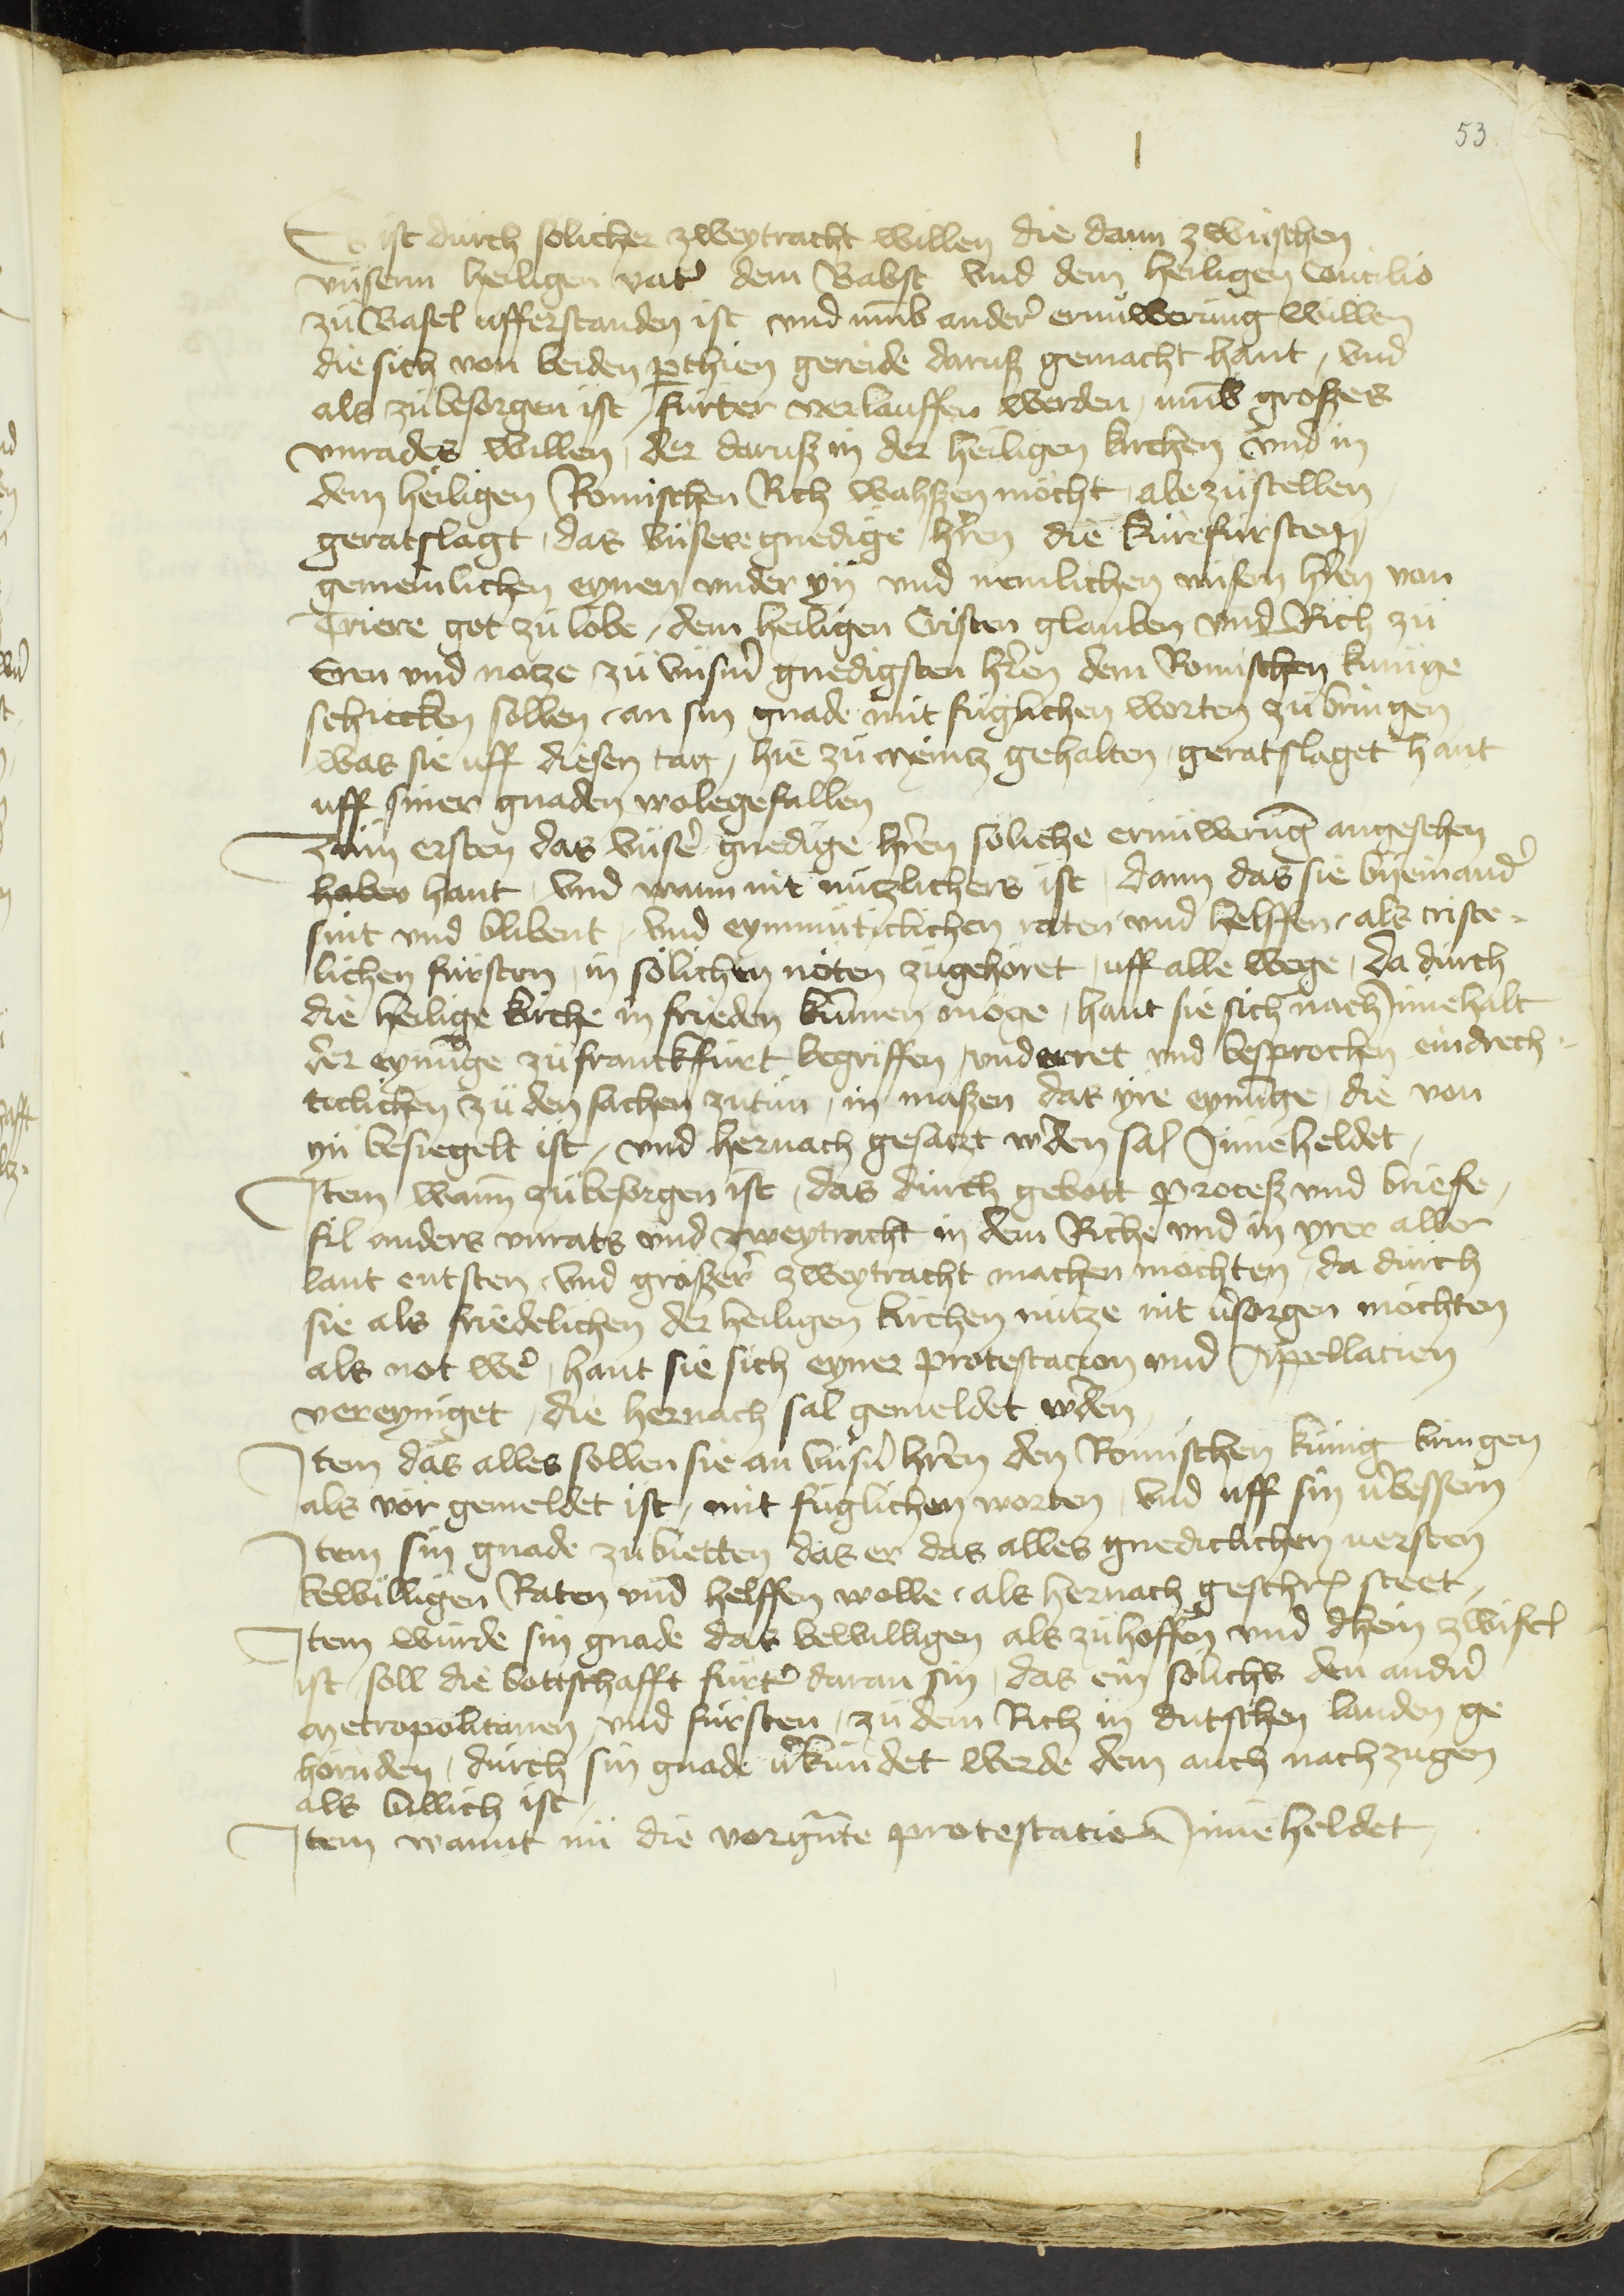 53
I
Es ist durch solicher zweytracht willen die dann zwuschen
unserm heiligen vater dem Babst vnd dem heiligen Concilio
zu Basel ufferstanden ist vnd umb ander ernuwerung willen
die sich von beiden parthien gereide daruß gemacht hant, vnd
als zu besorgen ist furter verlauffen werden, umb großes
vnrades willen, der daruß in der heiligen kirchen vnd in
dem heiligen Romischen Rich wahßen mocht abezustellen,
geratslagt, das vnsere gnedige herren die kurefursten
gemeinlichen eynen vnder yn vnd nemlichen vnsern herren von
Triere got zu lobe, dem heiligen Cristen glauben vnd Rich zu
Eren vnd notze zu vnserm gnedigsten herren dem Romischen kunige
schicken sollen, an sin gnade mit fuglichen worten zu bringen
was sie uff diesen tag, hie zu Meintz gehalten, geratslaget hant
uff siner gnaden wolegefallen
Zum ersten das vnser gnedige herren soliche ernuwerung angesehen
haben hant, vnd wann nit nutzlichers ist, dann das sie byeinander
sint vnd blibent, vnd eynmuticlichen raten vnd helffen, als criste-
lichen fursten, in solichen noten zugehoret, uff alle wege, da durch
die heilige kirche in frieden kummen moge, hant sie sich nach Innehalt
der eynunge zu franckfurt begriffen, underret vnd besprochen eindrech-
ticlichen zu den sachen zutun, in maßen das yre eynunge, die von
yn besiegelt ist, vnd hernach gesatzt werden sal Inneheldet,
Item wann zu besorgen ist, das durch gebott proceß vnd briefe,
fil anders vnrats vnd zweytracht in dem Riche vnd in yrer aller
lant entsten, vnd großer zweytracht machen mochten, da durch
sie als friedelichen der heiligen kirchen nutze nit versorgen mochten
als not wer, hant sie sich eyner protestacion vnd Appellacien
vereyniget, die hernach sal gemeldet werden
Item das alles sollen sie an vnsern herren den Romischen kunig bringen
als vor gemeldet ist, mit fuglichen worten, vnd uff sin verbessern
Item sin gnade zu bietten das er das alles gnediclichen versten
bewilligen Raten vnd helffen wolle, als hernach geschriben steet,
Item wurde sin gnade das bewilligen als zu hoffen vnd dhein zwifel
ist, soll die bottschafft furter daran sin, das ein solichs den andern
metropolitanen vnd fursten, zu dem Rich in dutschen landen ge
hornden, durch sin gnade verkundet werde dem auch nachzugen
als billich ist
Item wannt nu die vorgenante protestacien Inneheldet,